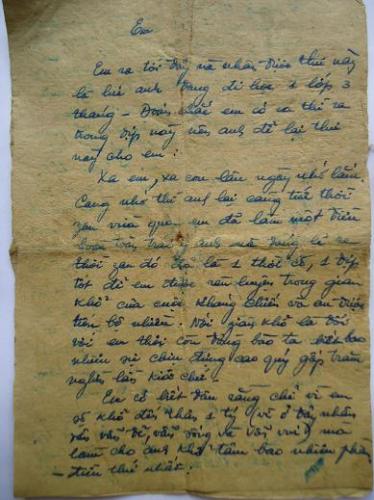 Em
Em ra tới đây và nhận được thư này
là lúc anh đang đi học 1 lớp 3
tháng - Đoán chắc em có ra thì ra
trong dịp này nên anh để lại thư
này cho em:
Xa em, xa con lâu ngày nhớ lắm.
Càng nhớ thì anh lại càng tiếc thời
gian vừa qua em đã làm một
anh mà đáng lẽ ra
thời gian đó là 1 thời cơ, 1 dịp
tốt để em được rèn luyện trong gian
khổ của cuộc kháng chiến và
tiến bộ nhiều. Nói gian khổ là đối
với em thôi còn đồng bào ta biết bao
nhiêu sự chịu đựng cao quý gấp trăm
nghìn lần
Em có biết đâu rằng chỉ vì em
sợ khổ đôi chân 1 tý về ở
vấn đề, vấn vẫn và mà
làm cho anh khổ tâm bao nhiêu
- thứ nhất.